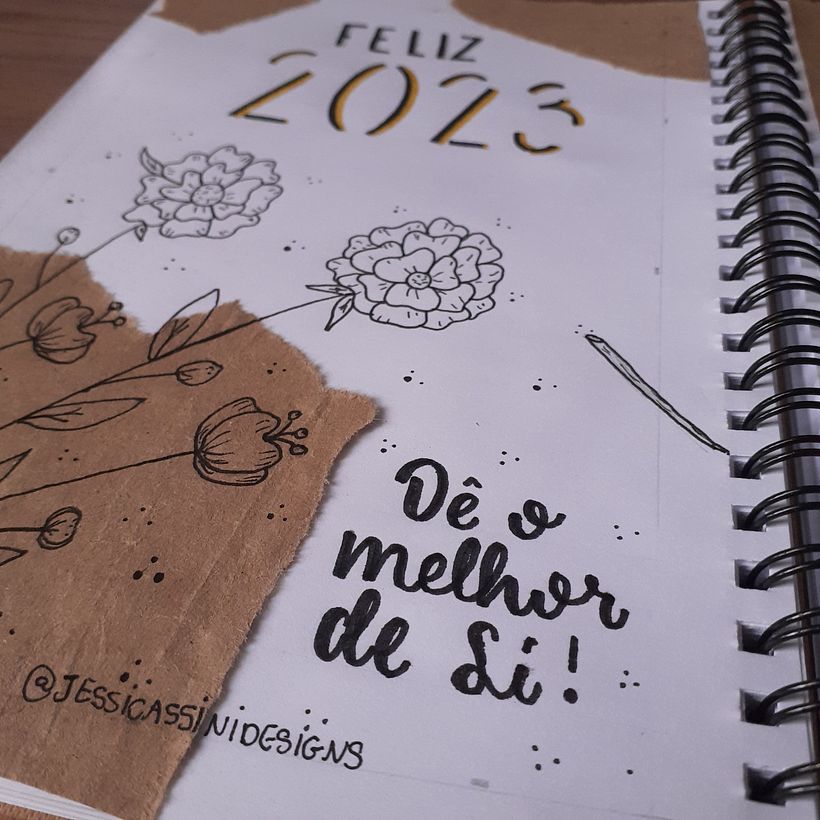 FELIZ
2023
Dê o
melhor
de Si!
@JESSICASSINIDESIGNS